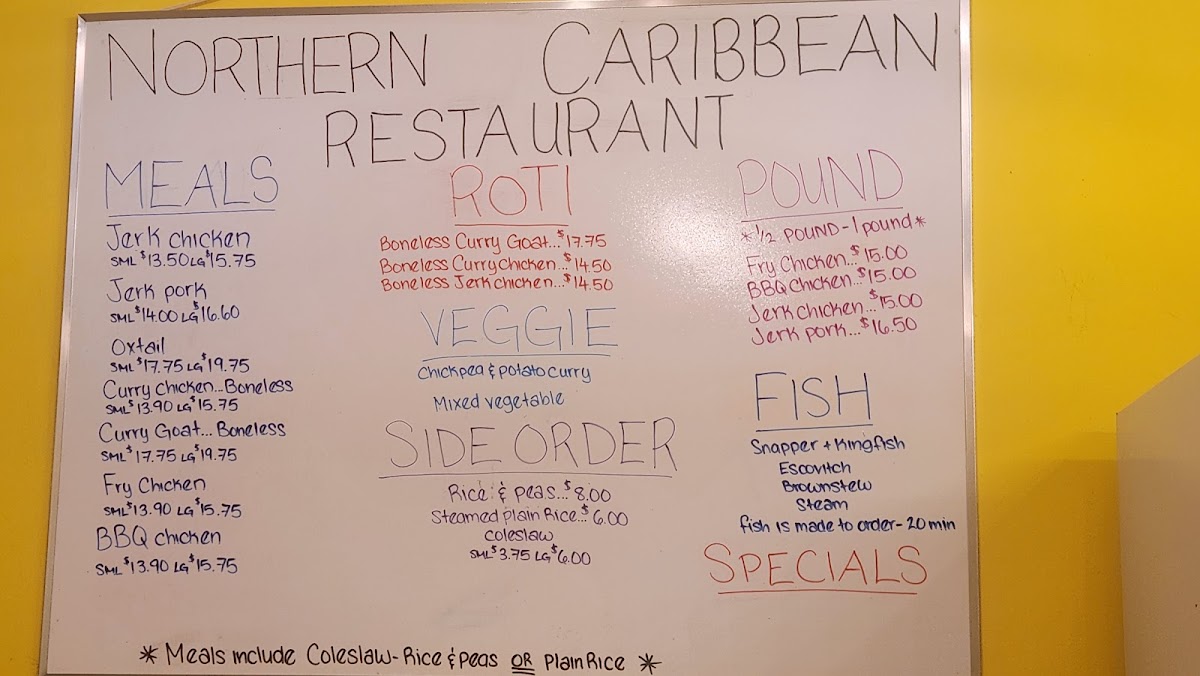 NORTHERN CARIBBEAN
RESTAURANT
MEALS
Jerk chicken
SML $13.50 LG $15.75
Jerk pork
SML $14.00 LG $16.60
Oxtail
SML $17.75 LG $19.75
Curry Chicken...Boneless
SML $13.90 LG $15.75
Curry Goat...Boneless
SML $17.75 LG $19.75
Fry Chicken
SML $13.90 LG $15.75
BBQ chicken
SML $13.90 LG $15.75
ROTI
Boneless Curry Goat...$17.75
Boneless Curry Chicken...$14.50
Boneless Jerk chicken...$14.50
VEGGIE
Chickpea & potato curry
Mixed vegetable
SIDE ORDER
Rice & Peas...$8.00
Steamed Plain Rice...$6.00
Coleslaw
SML $3.75 LG $6.00
POUND
*1/2 POUND - 1 pound*
Fry Chicken...$15.00
BBQ Chicken...$15.00
Jerk chicken...$15.00
Jerk pork...$16.50
FISH
Snapper + Kingfish
Escovitch
Brownstew
Steam
fish is made to order - 20 min
SPECIALS
* Meals include Coleslaw - Rice & Peas OR Plain Rice *